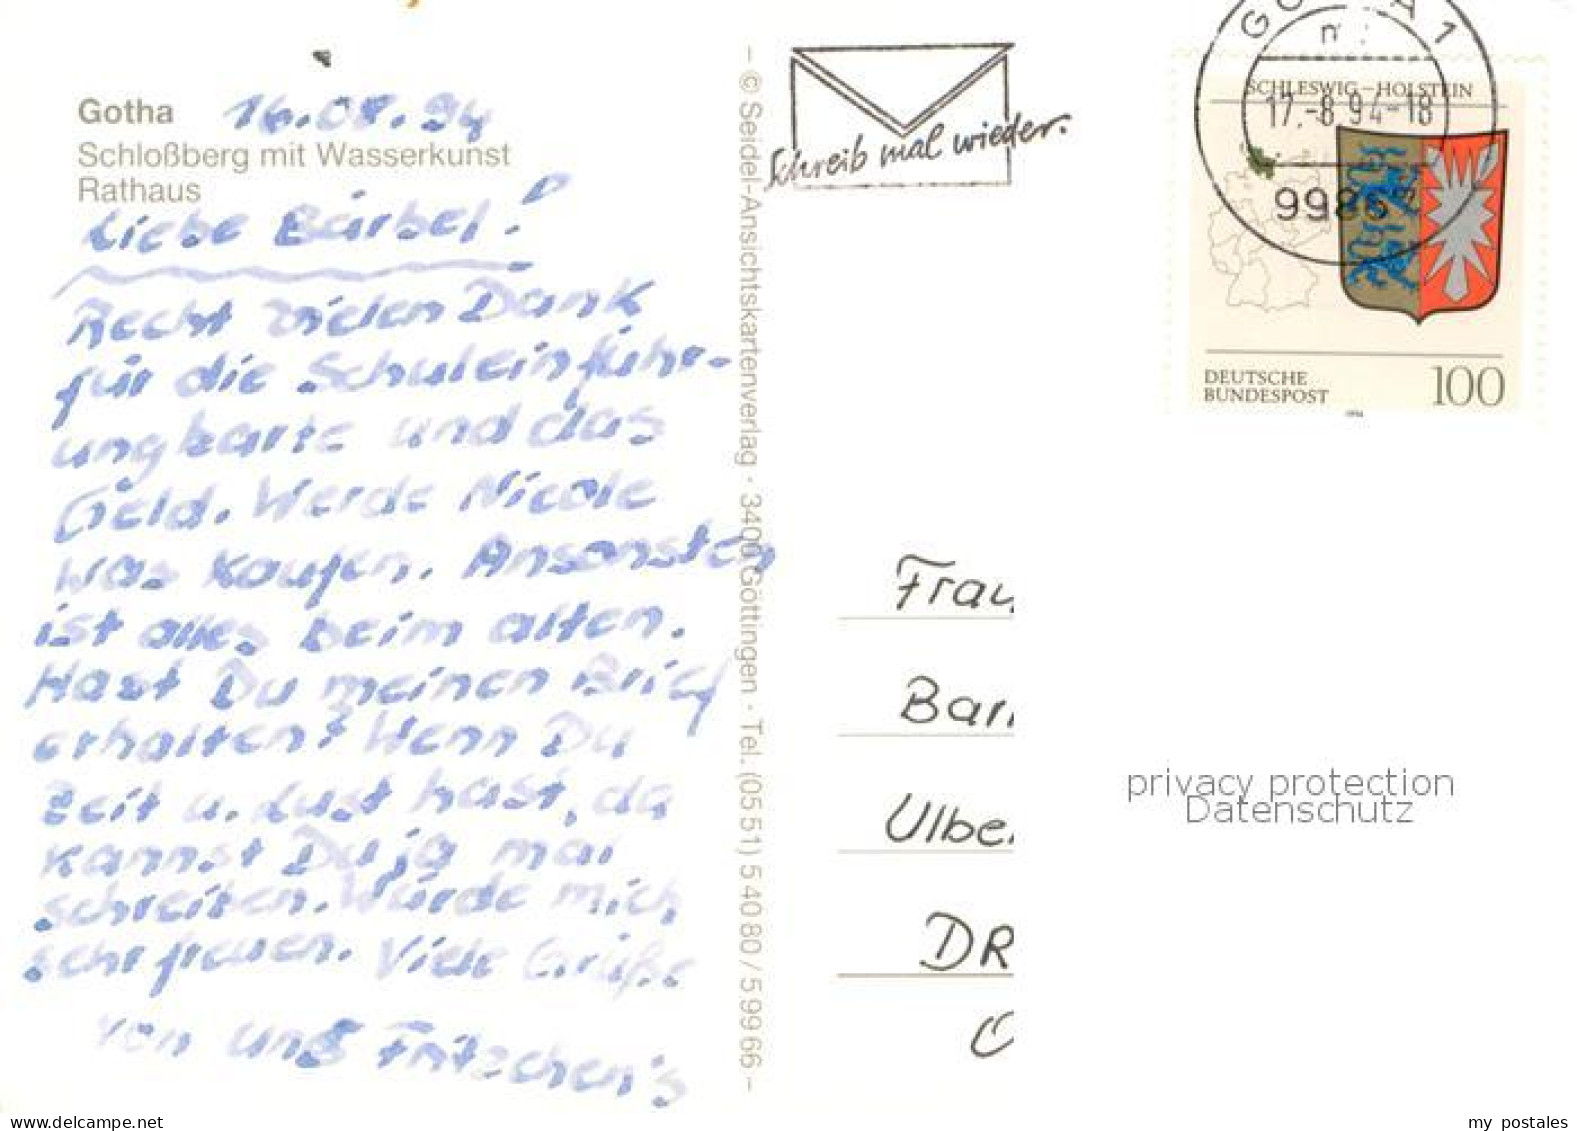 Gotha 16.08.94
Schloßberg mit Wasserkunst
Rathaus
Liebe Bärbel!
Recht vielen Dank
für die Schuleinführ-
ungkarte und das
Geld. Werde Nicole
was kaufen. Ansonsten
ist alles beim alten.
Hast Du meinen Brief
erhalten? Wenn Du
Zeit u. Lust hast, da
kannst Du ja mal
schreiben. Würde mich
sehr freuen. Viele Grüße
von uns Fritzchen's
– © Seidel-Ansichtskartenverlag · 3400 Göttingen · Tel. (05 51) 5 40 80 / 5 99 66 –
Schreib mal wieder.
GOTHA 1
17.-8.94-18
99867
SCHLESWIG–HOLSTEIN
DEUTSCHE
BUNDESPOST
100
1994
Frau
Bar
Ulbe
DR
privacy protection
Datenschutz
www.delcampe.net
my postales